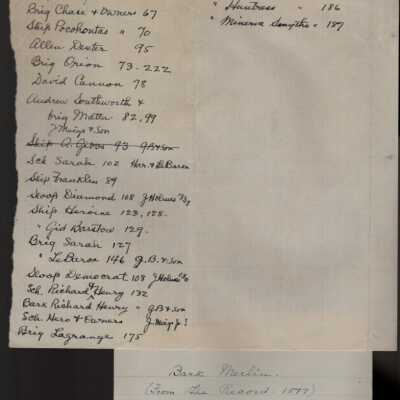 Brig Chase & Owners 67
Ship Pocohontas " 70
Allen Dexter 95
Brig Orion 73-222
David Cannon 78
Andrew Southworth &
brig Matter 82,99
J Meigs & Son
Ship A. Gibbs 93 GB&Son
Sch Sarah 102 Har. & LeBaron
Ship Franklin 89
Sloop Diamond 108 J Holmes
Ship Heroine 123, 128.
" Gid Barstow 129.
Brig Sarah 127
" LeBaron 146 G.B. & Son
Sloop Democrat 108 J Holmes
Sch. Richard & Henry 132
Bark Richard Henry " G.B & Son
Sch Hero & Owners J. Meigs
Brig Lagrange 175
" Huntress " 186
" Minerva Smythe " 187
Bark Merlin.
(From The Record 1877)